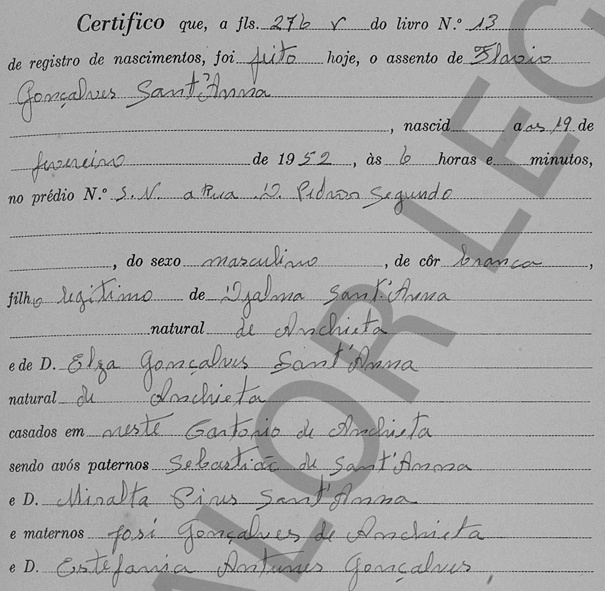 Certifico que, a fls. 276 v do livro N.º 13
de registro de nascimentos, foi feito hoje, o assento de Flavio
Gonçalves Sant'Anna
, nascid aos 19 de
fevereiro de 1952, às 6 horas e minutos,
no prédio N.º S.N. a Rua D. Pedro Segundo
, do sexo masculino, de côr branca,
filho legitimo de Djalma Sant'Anna
natural de Anchieta
e de D. Elza Gonçalves Sant'Anna
natural de Anchieta
casados em neste Cartorio de Anchieta
sendo avós paternos Sebastião de Sant'Anna
e D. Miralta Pires Sant'Anna
e maternos José Gonçalves de Anchieta
e D. Estefania Antunes Gonçalves,
ALOR LEG